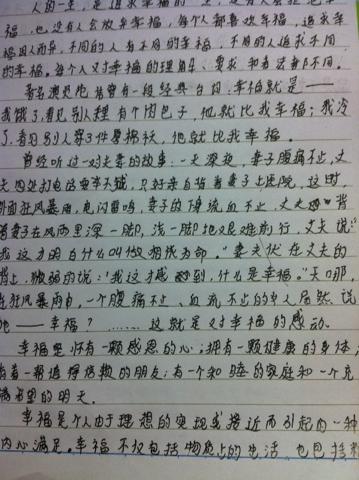 人的一生,是追求幸福的一生,是有人会拒绝幸
福,也没有人会放弃幸福,每个人都喜欢幸福,追求幸
福因人而异,不同的人有不同的幸福,不同的人追求不同
的幸福。每个人对幸福的理解、要求和看法都不同。
著名演员范伟曾有一段经典台词,幸福就是——
我饿了,看见别人手里有个肉包子,他就比我幸福;我冷
了,看见别人穿了件厚棉袄,他就比我幸福。
曾经听过一对夫妻的故事。一天深夜,妻子腹痛不止,丈
夫四处打电话要车不成,只好亲自背着妻子上医院,这时,
外面狂风暴雨,电闪雷鸣,妻子的下体流血不止,丈夫背
着妻子在风雨里深一脚,浅一脚地艰难前行,丈夫说:"
我这才明白什么叫做相依为命。"妻子伏在丈夫的
背上,微弱的说:"我这才感到,什么是幸福。"天哪,
在狂风暴雨中,一个腹痛不止、血流不止的女人居然说
她——幸福?………这就是对幸福的感动。
幸福是怀有一颗感恩的心;拥有一颗健康的身体,
有一帮值得信赖的朋友;有一个和睦的家庭和一个充
满希望的明天。
幸福是个人由于理想的实现或接近而引起的一种
内心满足。幸福不仅包括物质上的生活,也包括精